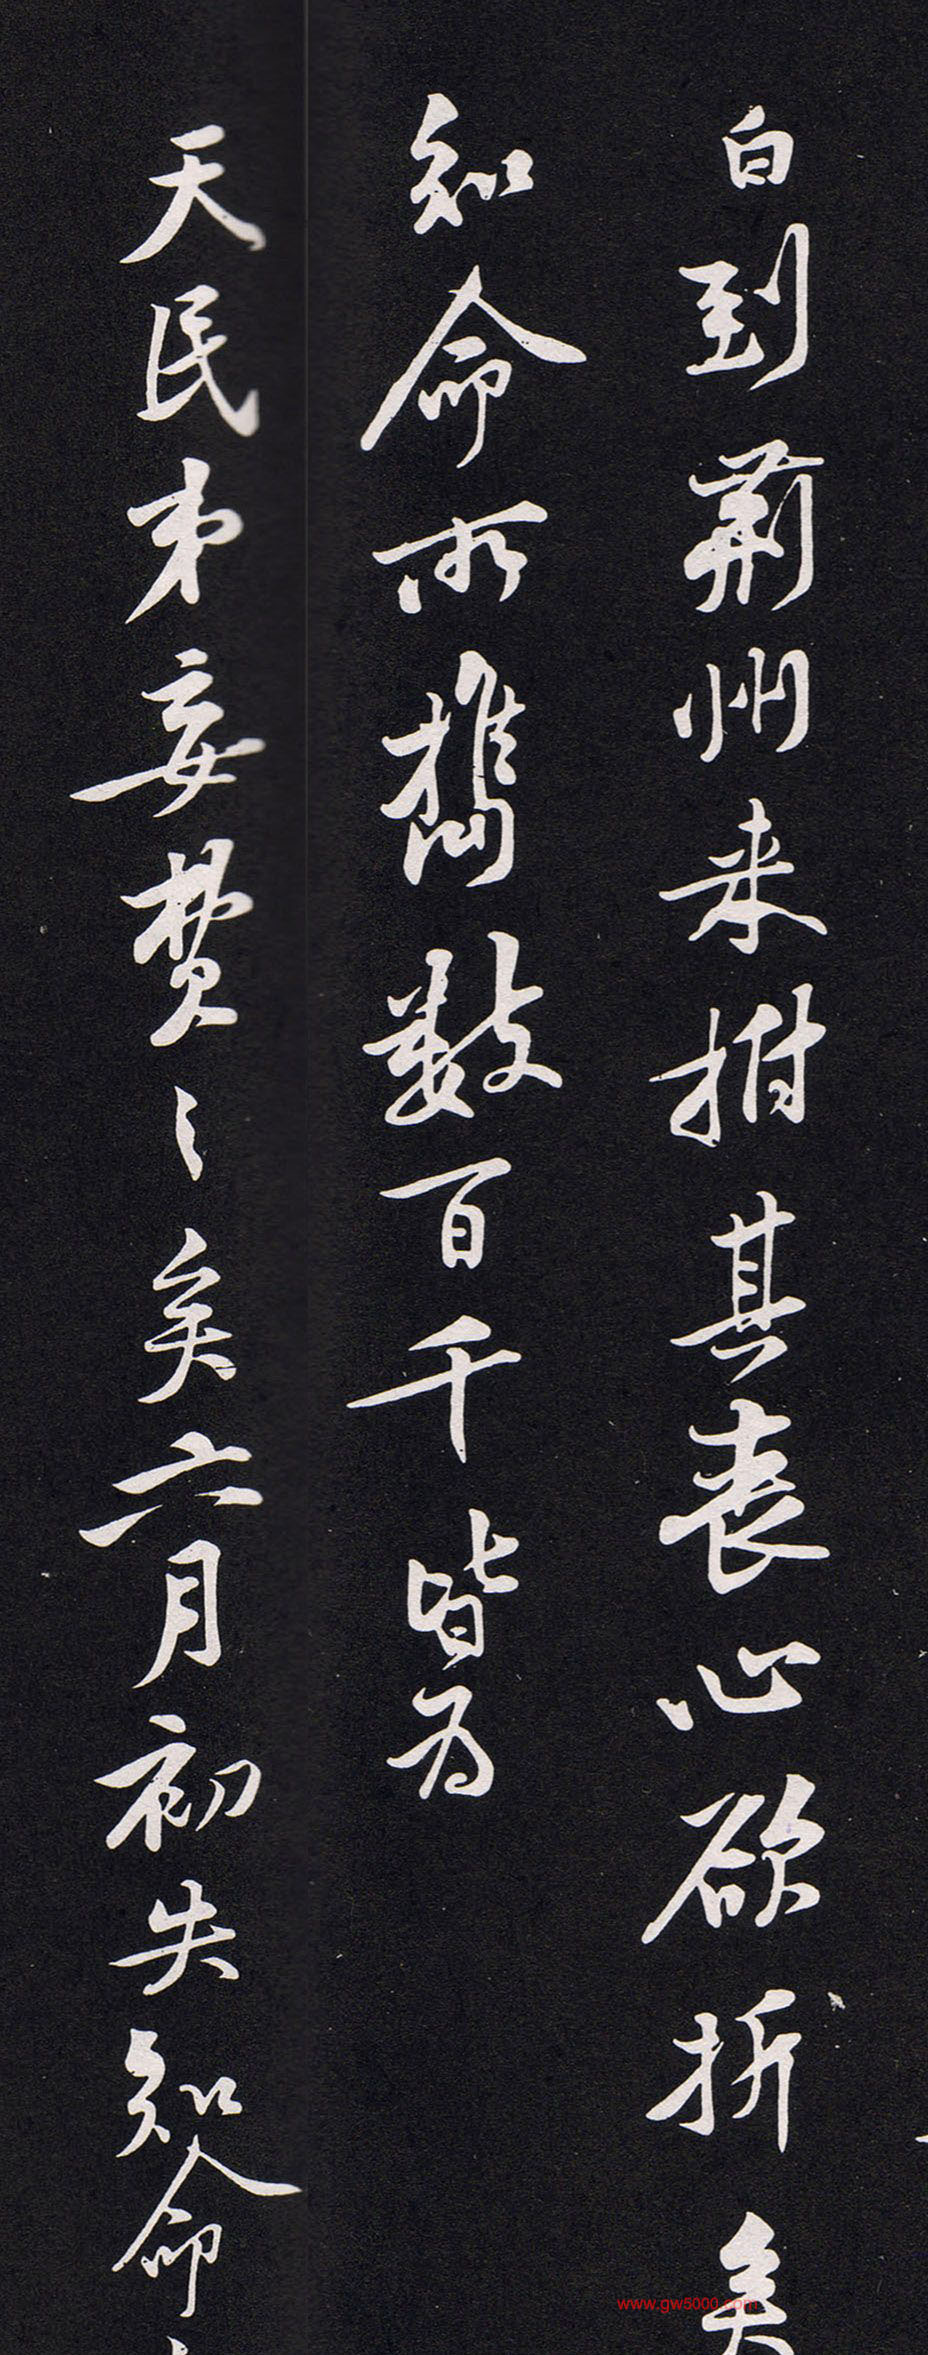 白到荆州来拊其丧心欲折矣
知命所携数百千皆为
天民弟妄费之矣六月初失知命
www.gw5000.com